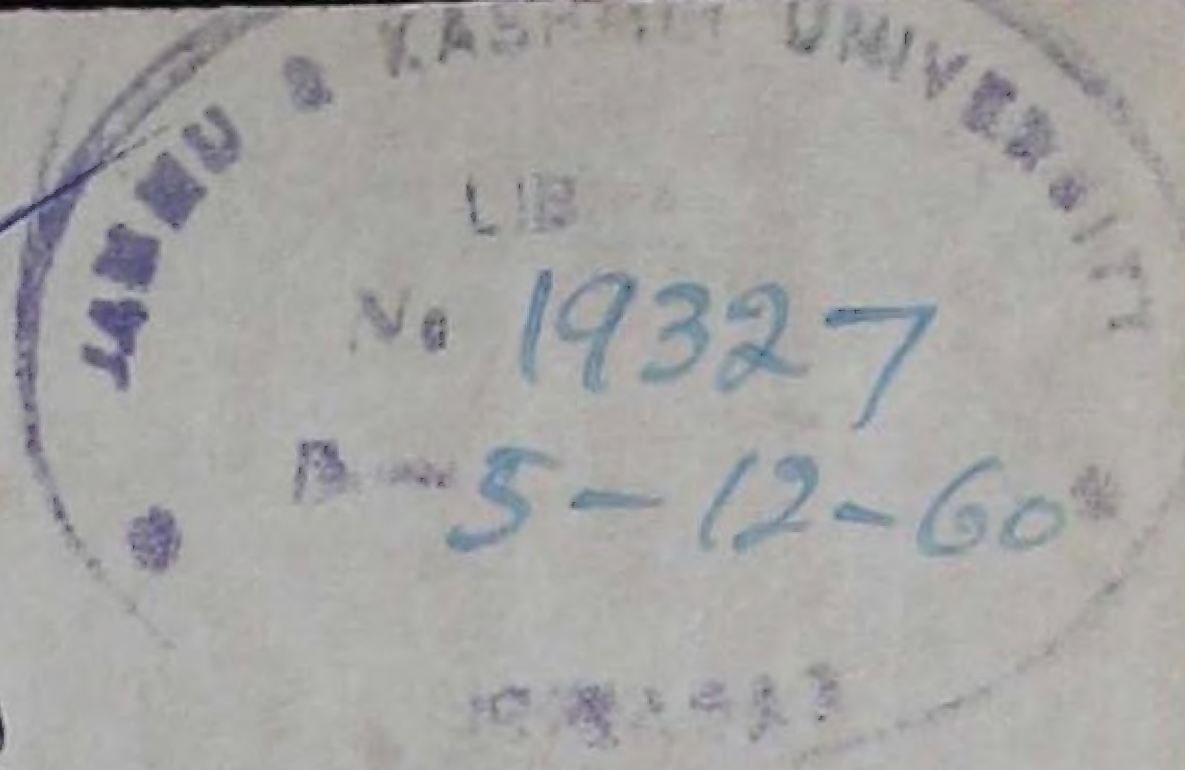 JAMMU & KASHMIR UNIVERSITY
LIB
No 19327
D 5-12-60